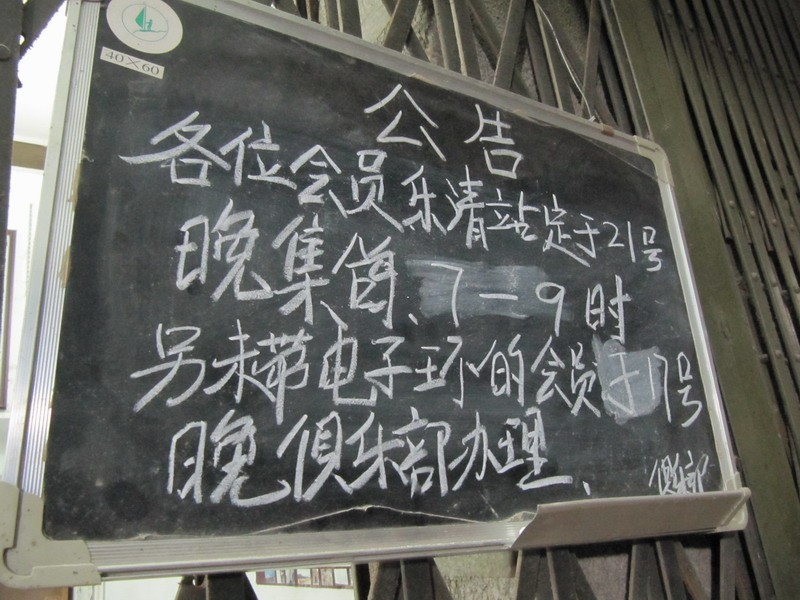 40×60
公告
各位会员乐清站定于21号
晚集鸽、7一9时
另未带电子环的会员于17号
晚俱乐部办理、
俱乐部